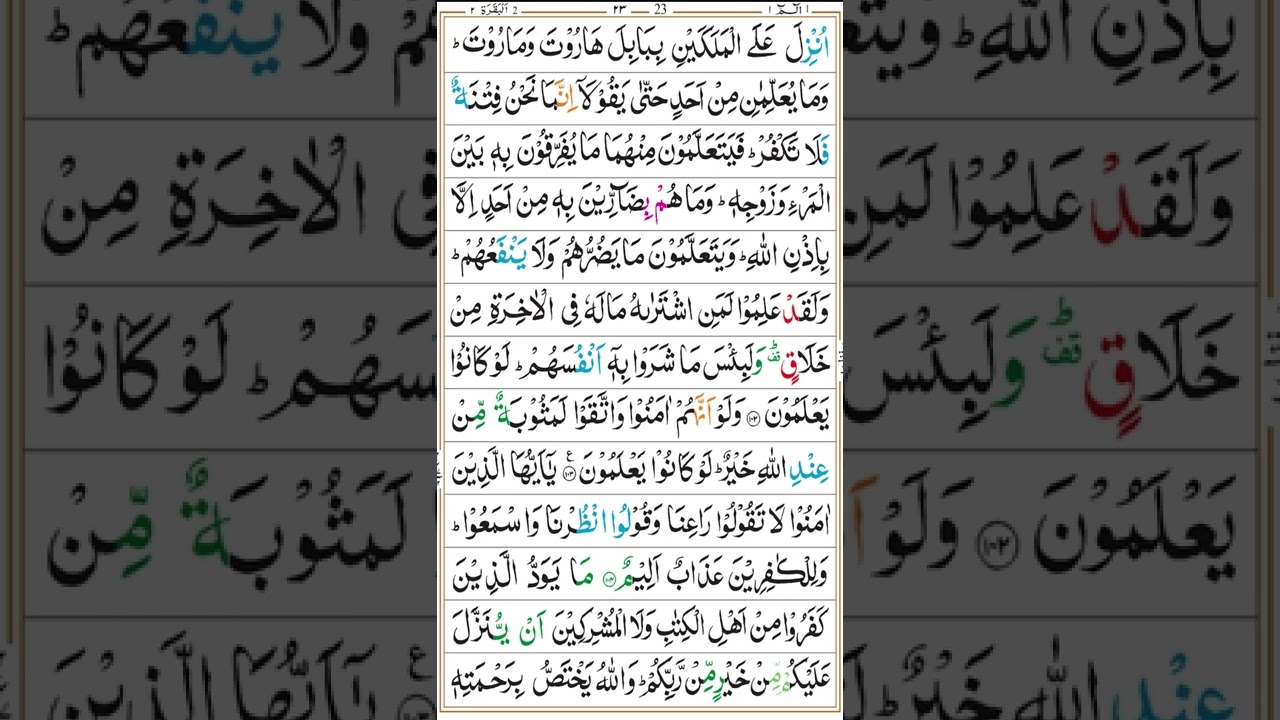 ١ الٓمّٓ ١ 23 ٢٣ 2 اَلْبَقَرَة ٢
اُنْزِلَ عَلَى الْمَلَكَيْنِ بِبَابِلَ هَارُوْتَ وَمَارُوْتَ ؕ
وَمَا يُعَلِّمٰنِ مِنْ اَحَدٍ حَتّٰى يَقُوْلَاۤ اِنَّمَا نَحْنُ فِتْنَةٌ
فَلَا تَكْفُرْ ؕ فَيَتَعَلَّمُوْنَ مِنْهُمَا مَا يُفَرِّقُوْنَ بِهٖ بَيْنَ
الْمَرْءِ وَزَوْجِهٖ ؕ وَمَا هُمْ بِضَآرِّيْنَ بِهٖ مِنْ اَحَدٍ اِلَّا
بِاِذْنِ اللّٰهِ ؕ وَيَتَعَلَّمُوْنَ مَا يَضُرُّهُمْ وَلَا يَنْفَعُهُمْ ؕ
وَلَقَدْ عَلِمُوْا لَمَنِ اشْتَرٰىهُ مَا لَهٗ فِى الْاٰخِرَةِ مِنْ
خَلَاقٍ ؕ قف وَلَبِئْسَ مَا شَرَوْا بِهٖۤ اَنْفُسَهُمْ ؕ لَوْ كَانُوْا
يَعْلَمُوْنَ ﴿۱۰۲﴾ وَلَوْ اَنَّهُمْ اٰمَنُوْا وَاتَّقَوْا لَمَثُوْبَةٌ مِّنْ
عِنْدِ اللّٰهِ خَيْرٌ ؕ لَوْ كَانُوْا يَعْلَمُوْنَ ﴿۱۰۳﴾ ع يٰۤاَيُّهَا الَّذِيْنَ
اٰمَنُوْا لَا تَقُوْلُوْا رَاعِنَا وَقُوْلُوا انْظُرْنَا وَاسْمَعُوْا ؕ
وَلِلْكٰفِرِيْنَ عَذَابٌ اَلِيْمٌ ﴿۱۰۴﴾ مَا يَوَدُّ الَّذِيْنَ
كَفَرُوْا مِنْ اَهْلِ الْكِتٰبِ وَلَا الْمُشْرِكِيْنَ اَنْ يُّنَزَّلَ
عَلَيْكُمْ مِّنْ خَيْرٍ مِّنْ رَّبِّكُمْ ؕ وَاللّٰهُ يَخْتَصُّ بِرَحْمَتِهٖ